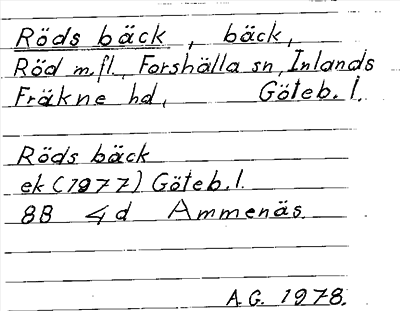 Röds bäck, bäck,
Röd m.fl., Forshälla sn, Inlands
Fräkne hd, Göteb. l.
Röds bäck
ek (1977) Göteb. l.
8B 4d Ammenäs
A.G. 1978.